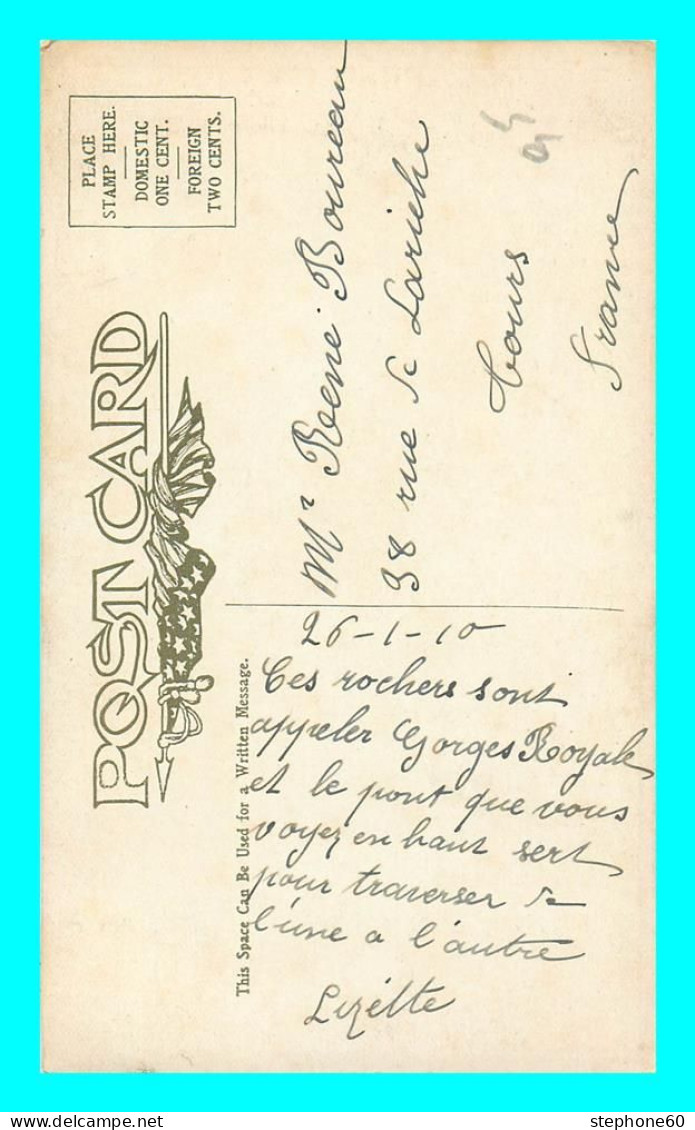 PLACE
STAMP HERE.
DOMESTIC
ONE CENT.
FOREIGN
TWO CENTS.
POST CARD
This Space Can Be Used for a Written Message.
26-1-10
Ces rochers sont
appeler Gorges Royale
et le pont que vous
voyez en haut sert
pour traverser de
l'une a l'autre
Lizette
Mr René Boureau
38 rue de Lariche
Tours
France
stephone60